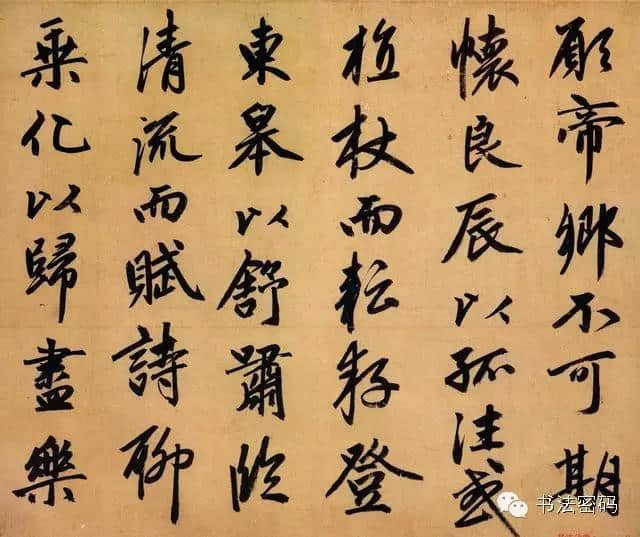 願帝鄉不可期
懷良辰以孤往或
植杖而耘耔登
東皋以舒嘯臨
清流而賦詩聊
乘化以歸盡樂
书法密码